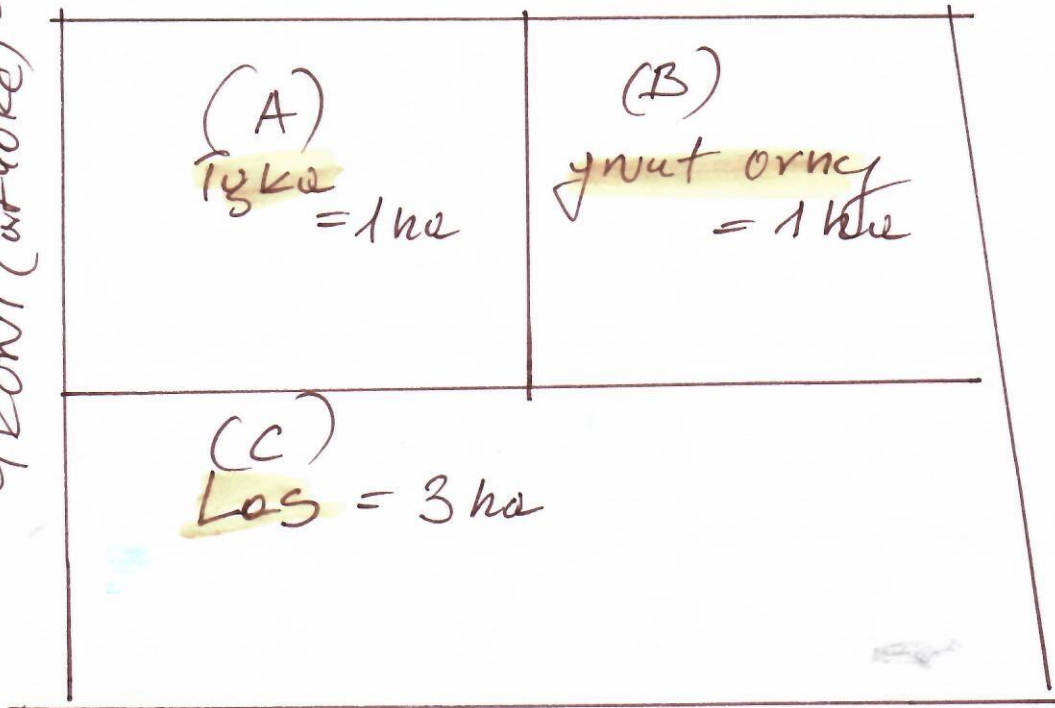 (A)
Łąka
= 1 ha
(B)
grunt orny
= 1 ha
(C)
Las = 3 ha